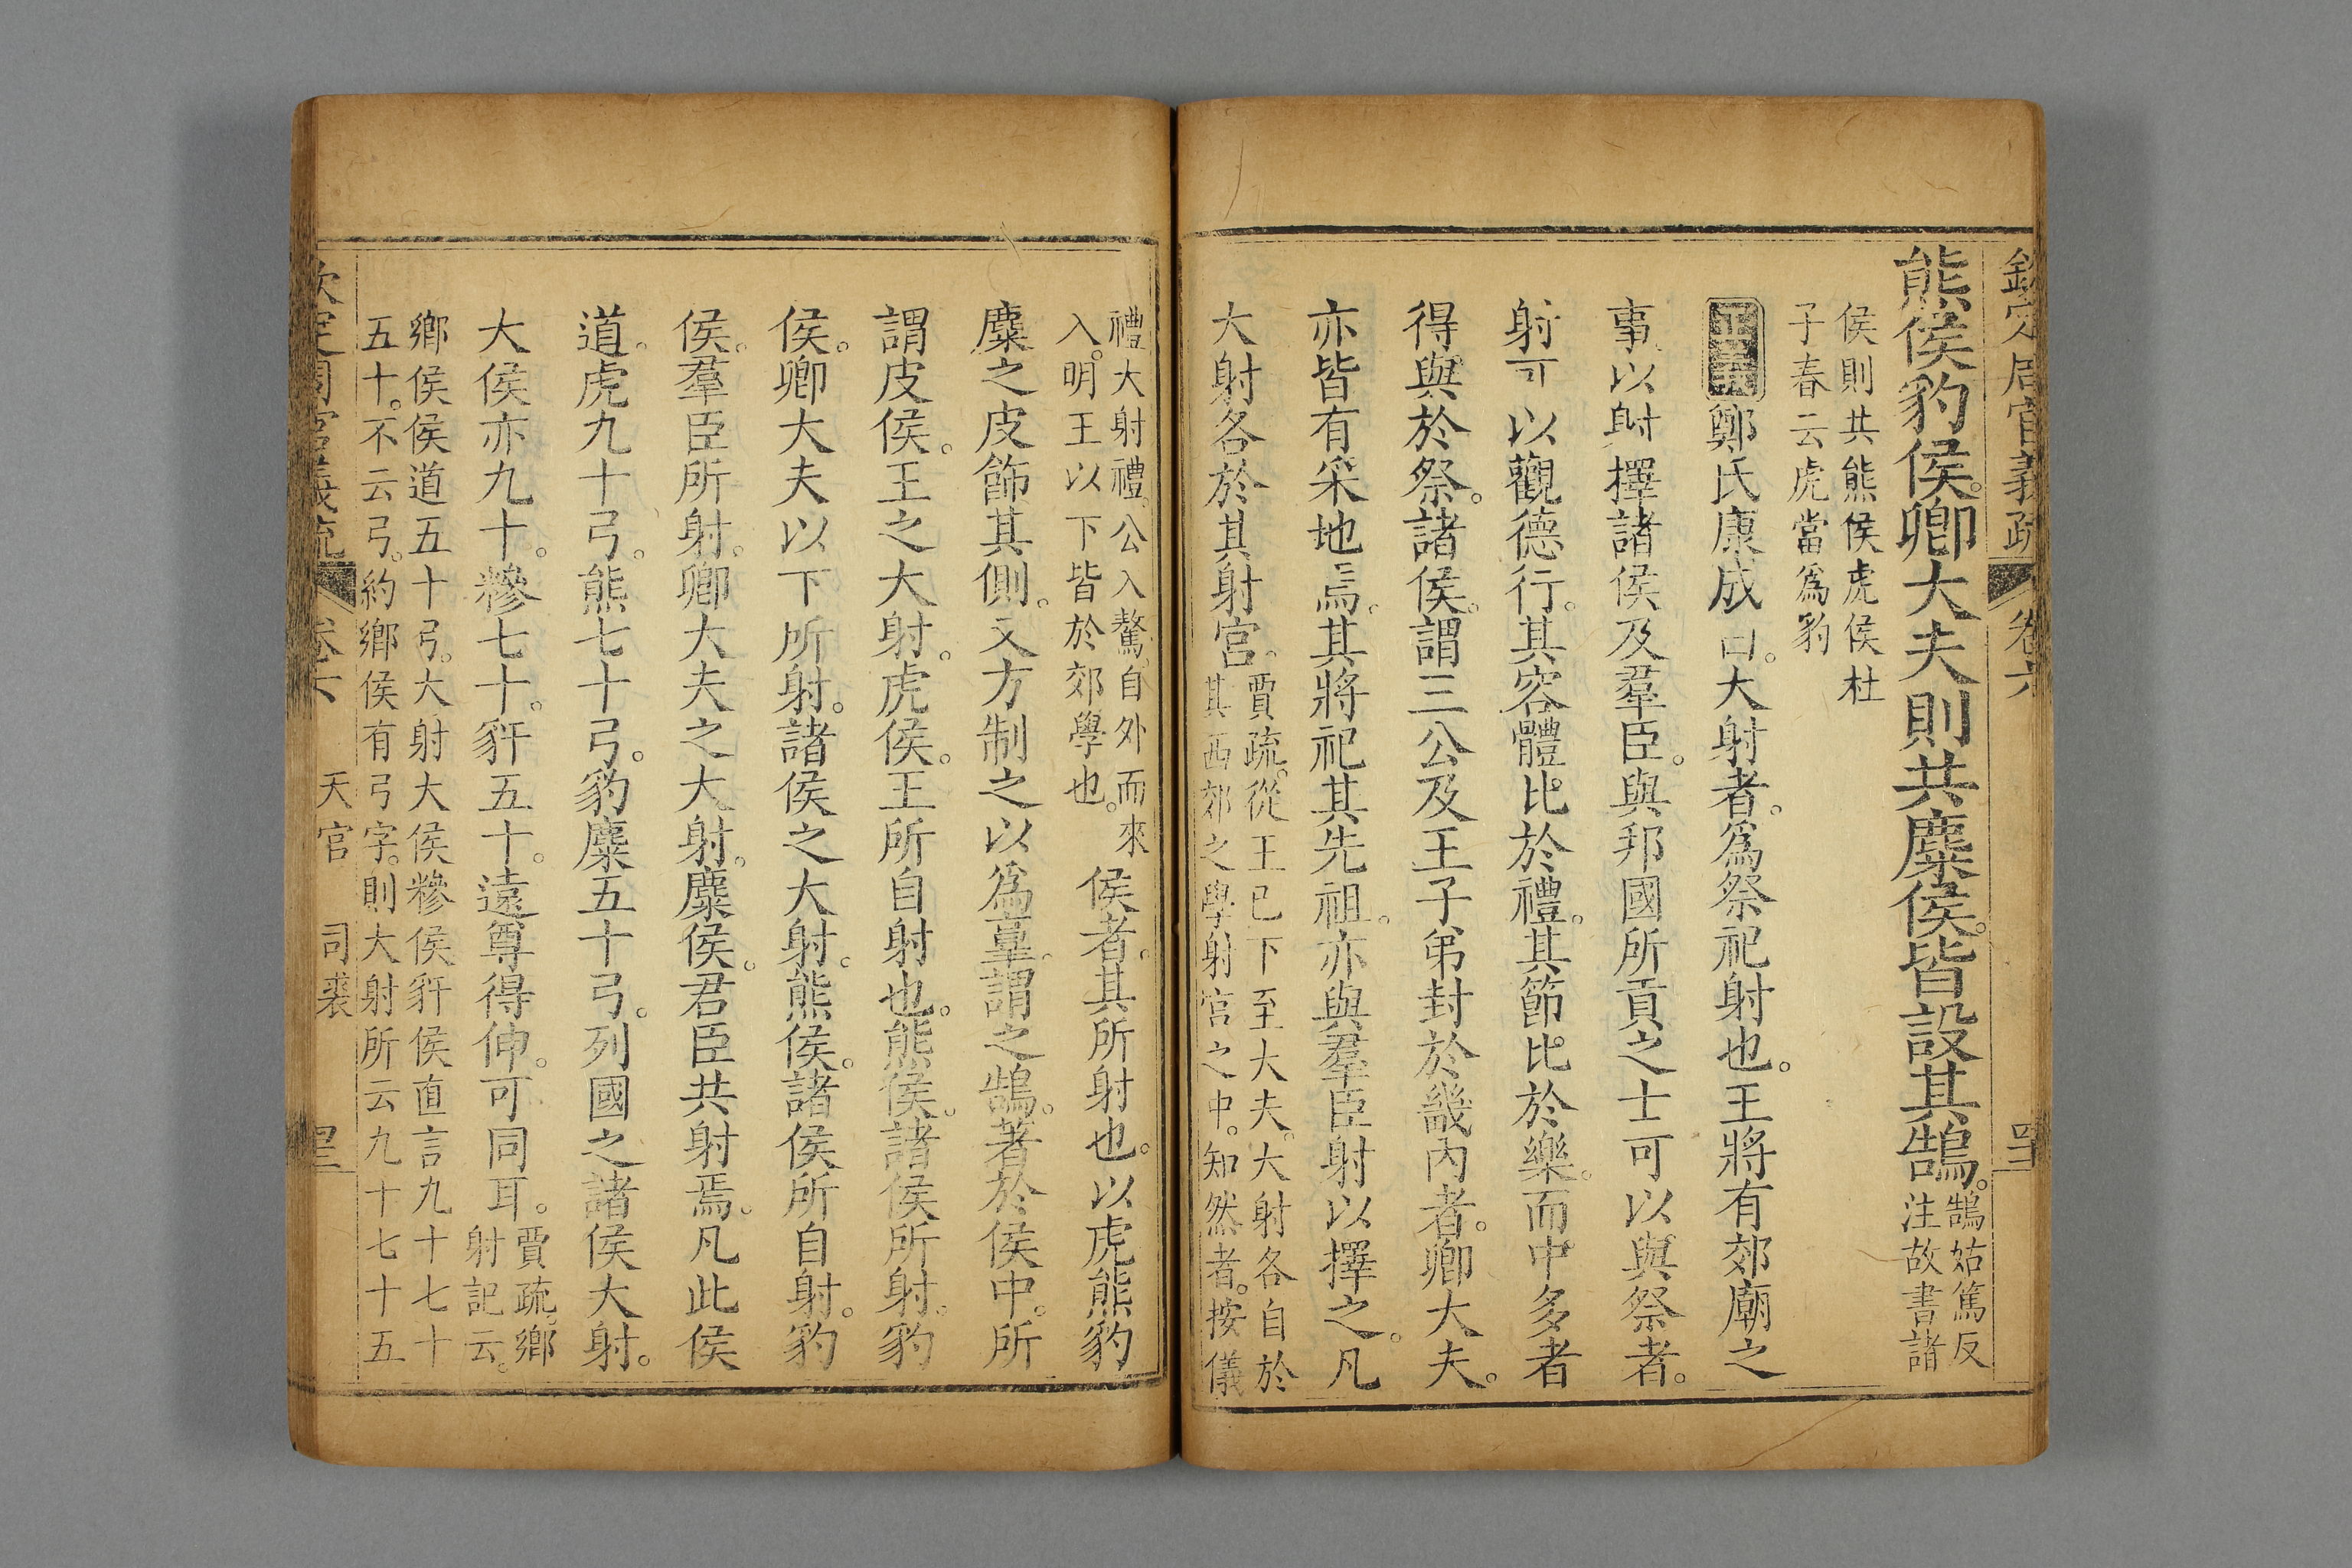 欽定周官義疏 卷六
熊侯豹侯。卿大夫則共麋侯。皆設其鵠。鵠姑篤反
注故書諸
侯則共熊侯虎侯杜
子春云虎當爲豹
正義鄭氏康成曰。大射者。爲祭祀射也。王將有郊廟之
事。以射擇諸侯及羣臣。與邦國所貢之士可以與祭者。
射可以觀德行。其容體比於禮。其節比於樂。而中多者
得與於祭。諸侯。謂三公及王子弟封於畿內者。卿大夫。
亦皆有采地焉。其將祀其先祖。亦與羣臣射以擇之。凡
大射各於其射宮。賈疏。從王已下至大夫。大射各自於
其西郊之學射宮之中。知然者。按儀
禮大射禮。公入驁。自外而來
入。明王以下皆於郊學也。侯者。其所射也。以虎熊豹
麋之皮飾其側。又方制之以爲𦎧。謂之鵠。著於侯中。所
謂皮侯。王之大射。虎侯。王所自射也。熊侯。諸侯所射。豹
侯。卿大夫以下所射。諸侯之大射。熊侯。諸侯所自射。豹
侯。羣臣所射。卿大夫之大射。麋侯。君臣共射焉。凡此侯
道。虎九十弓。熊七十弓。豹麋五十弓。列國之諸侯大射。
大侯亦九十。糝七十。豻五十。遠尊得伸。可同耳。賈疏。鄉
射記云。
鄉侯侯道五十弓。大射大侯糝侯豻侯直言九十七十
五十。不云弓。約鄉侯有弓字。則大射所云九十七十五
欽定周官義疏 卷六 天官 司裘